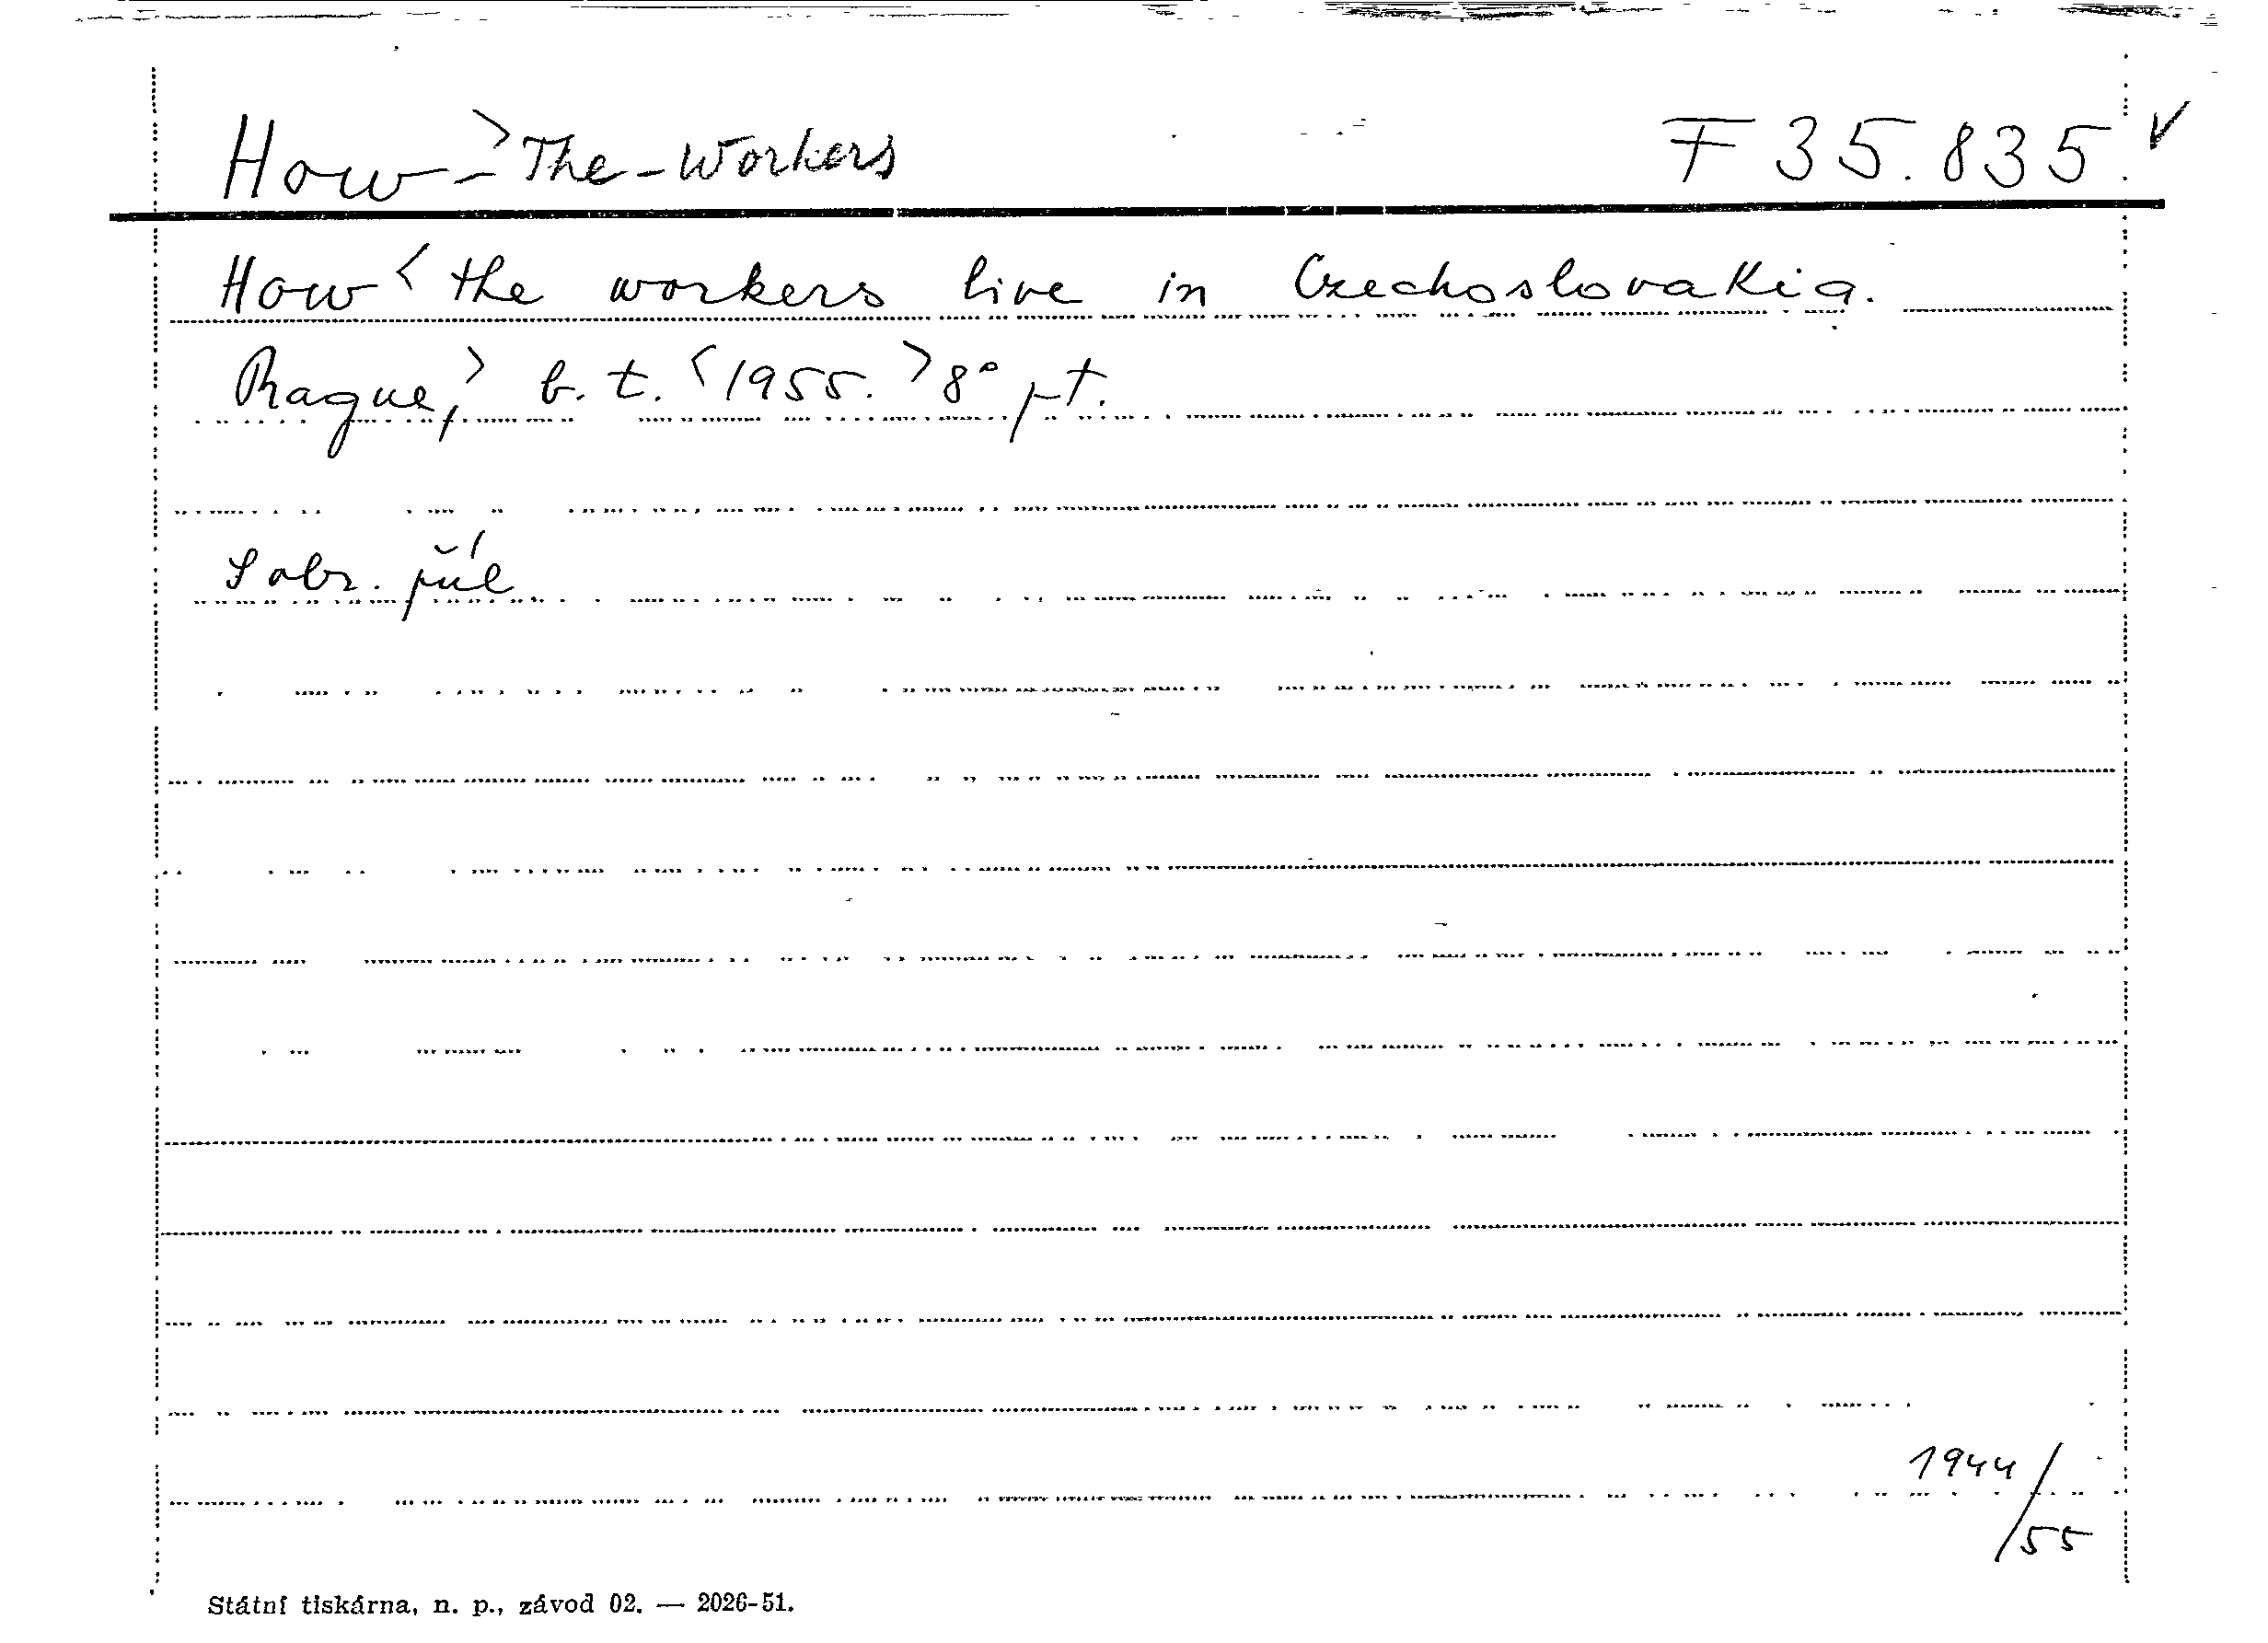 How - > The - Workers F 35.835. ✓
How < the workers live in Czechoslovakia.
Prague, > b. t. < 1955. > 8° pt.
S obr. příl.
1944/
/55
Státní tiskárna, n. p., závod 02. — 2026-51.